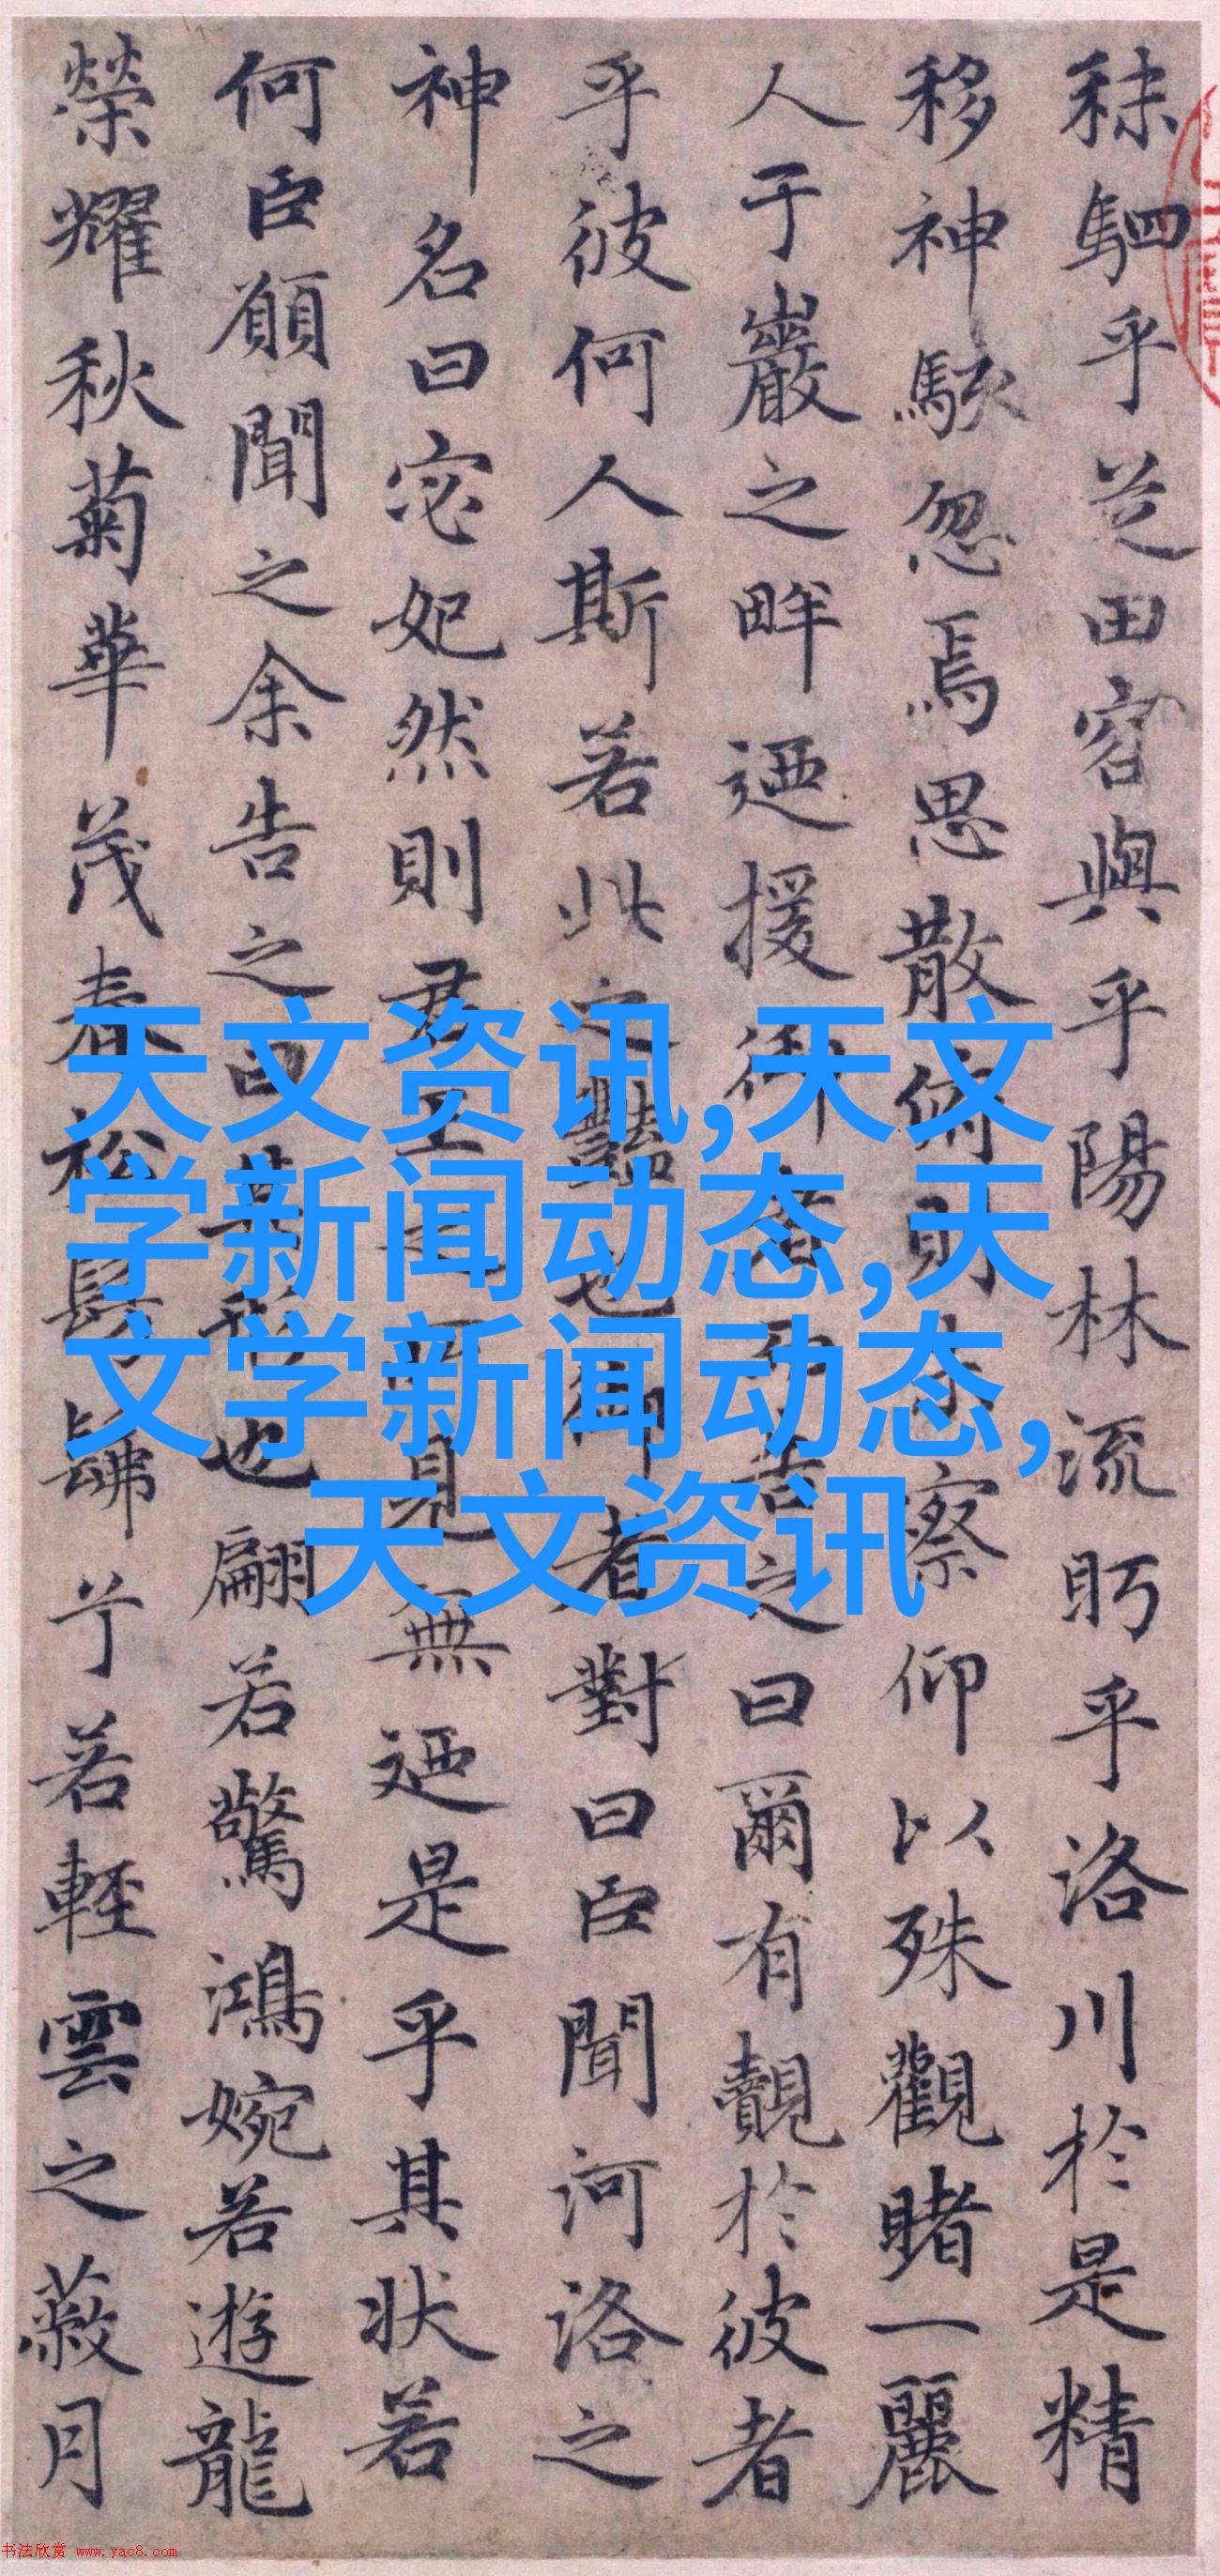 秣駟乎芝田容與乎陽林流眄乎洛川於是精
移神駭忽焉思散俯則未察仰以殊觀睹一麗
人于巖之畔迺援御者而告之曰爾有覿於彼者
乎彼何人斯若此之豔也御者對曰臣聞河洛之
神名曰宓妃然則君王之所見無迺是乎其狀若
何臣願聞之余告之曰其形也翩若驚鴻婉若遊龍
榮耀秋菊華茂春松髣髴兮若輕雲之蔽月
天文资讯,天文
学新闻动态,天
文学新闻动态,
天文资讯
书法欣赏 www.yac8.com